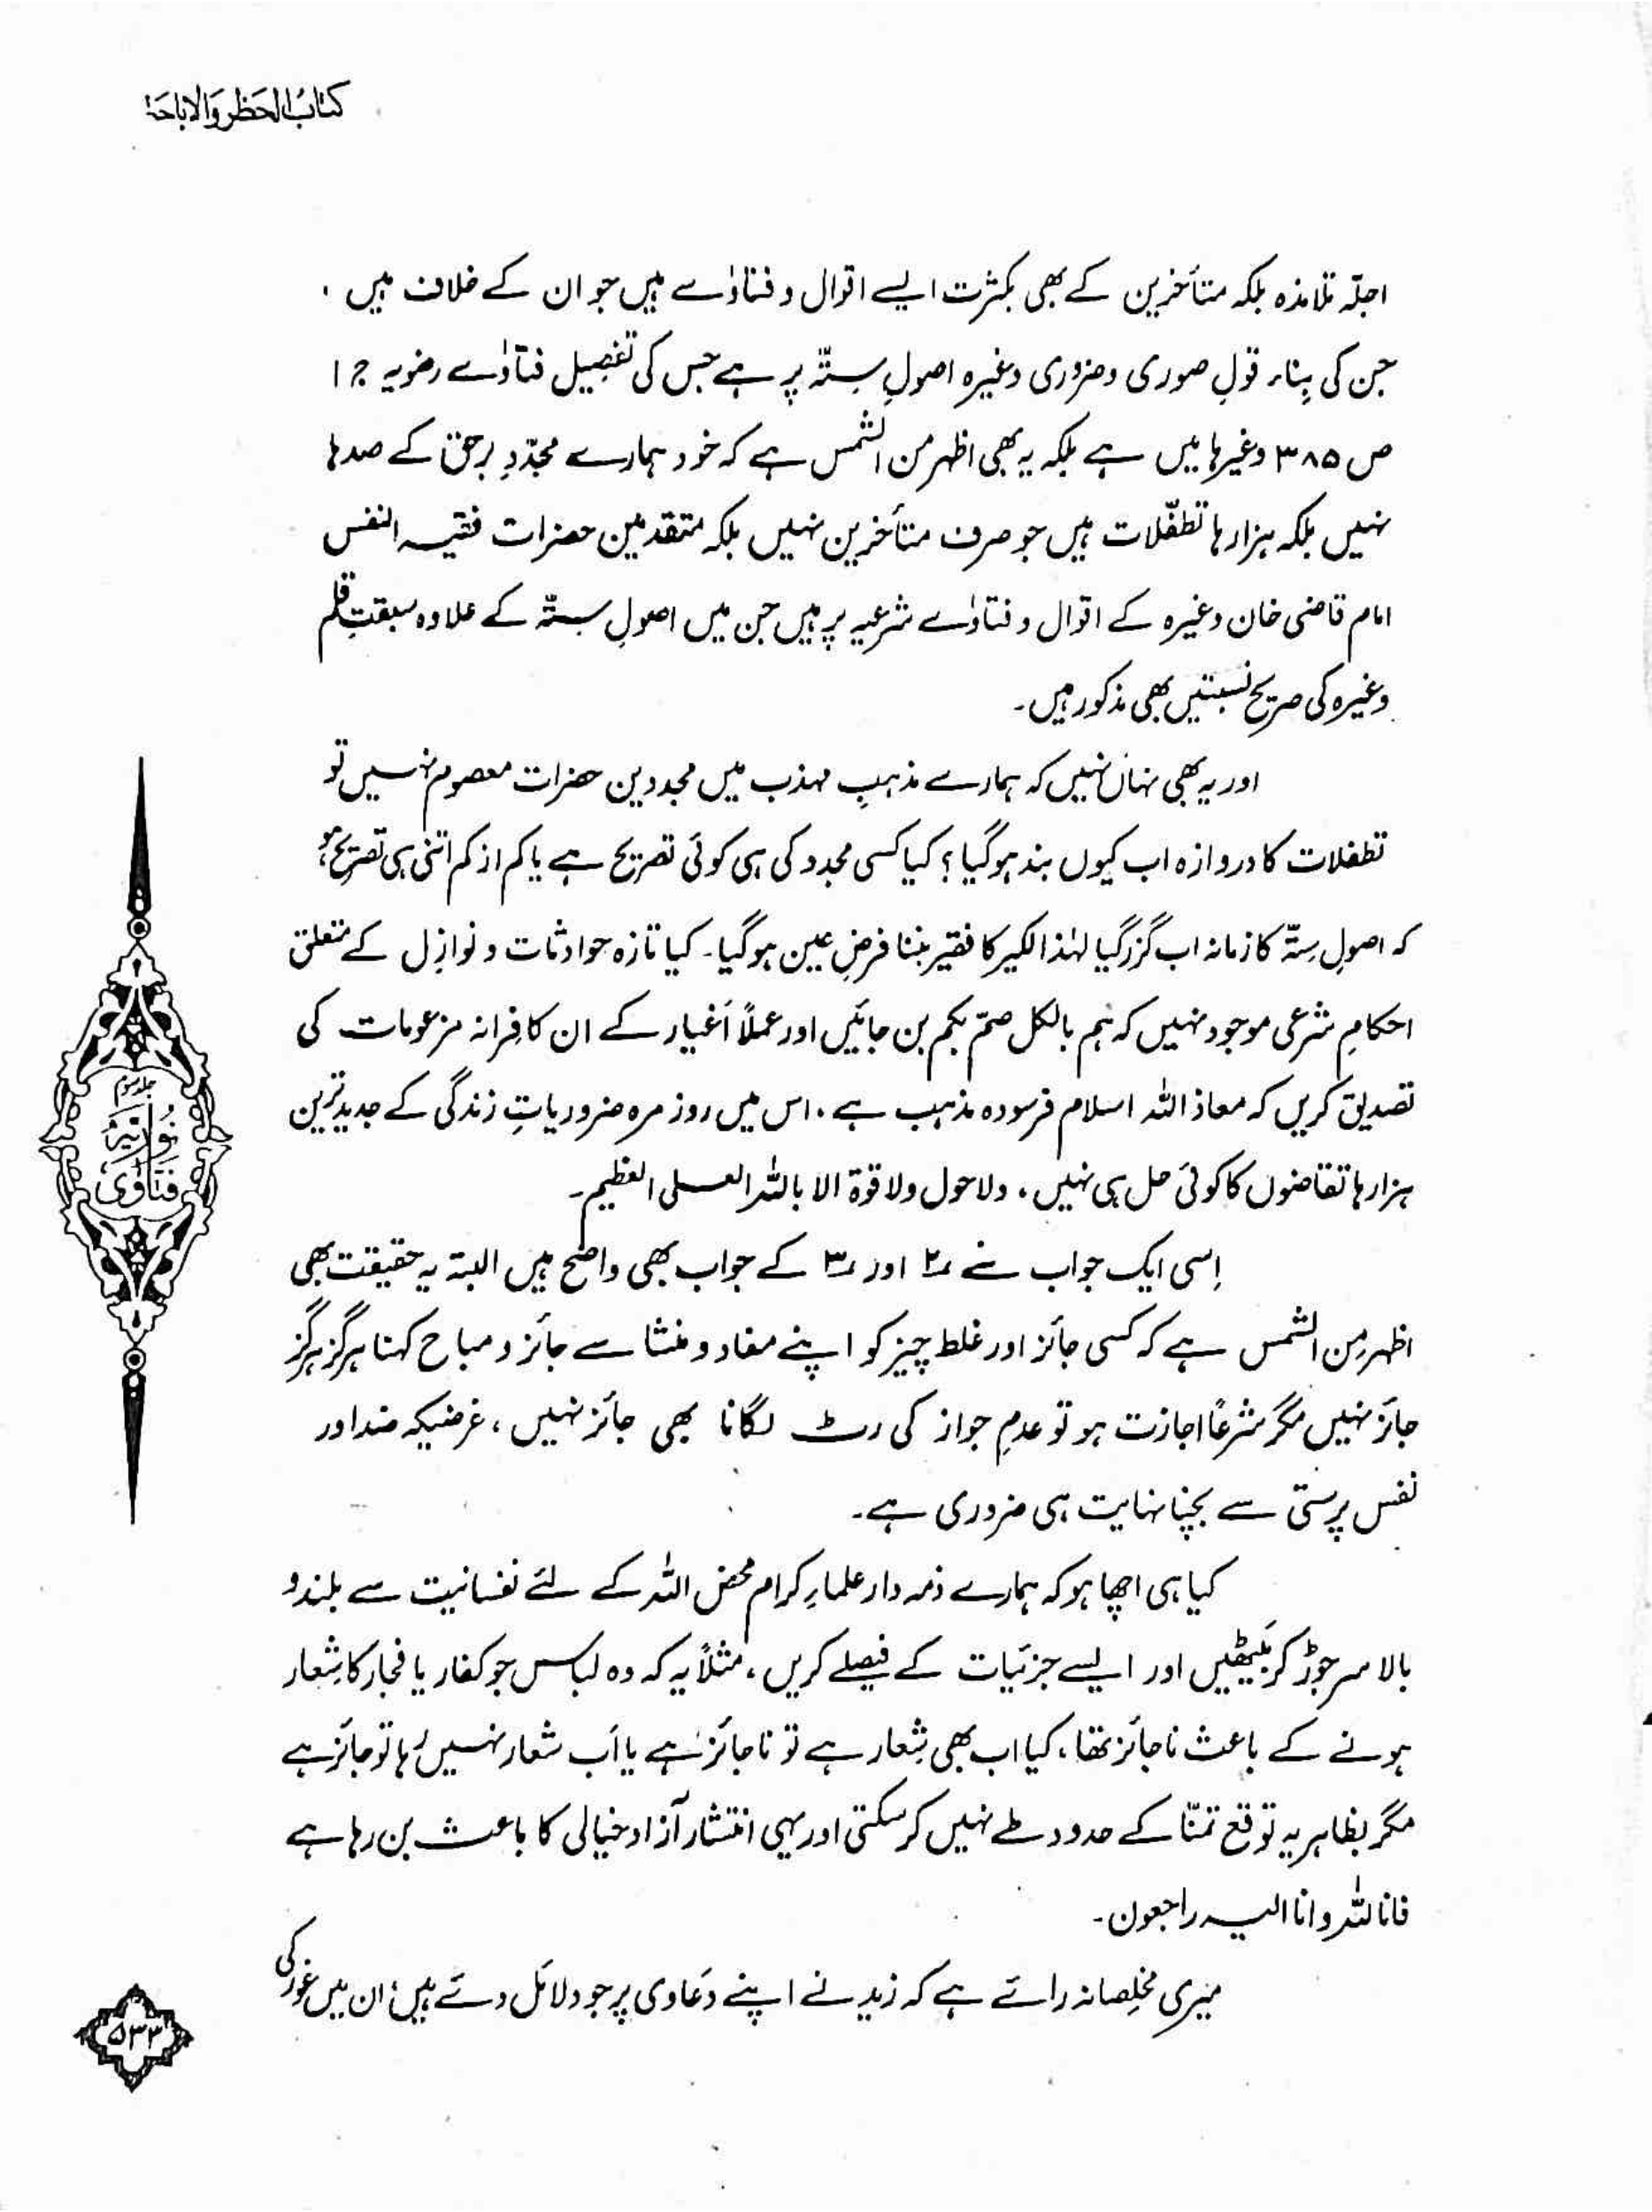 کتابُ الحَظر وَالاباحَۃ
اجلّہ تلامذہ بلکہ متأخرین کے بھی بکثرت ایسے اقوال و فتاوٰے ہیں جو ان کے خلاف ہیں ،
جن کی بِناء قولِ صوری و ضروری وغیرہ اصولِ ستّہ پر ہے جس کی تفصیل فتاوٰے رضویہ ج ۱
ص ۳۸۵ وغیرہا میں ہے بلکہ یہ بھی اظہر من الشّمس ہے کہ خود ہمارے مجدّدِ برحق کے صدہا
نہیں بلکہ ہزارہا تطفّلات ہیں جو صرف متأخرین نہیں بلکہ متقدمین حضرات فقیہ النفس
امام قاضی خان وغیرہ کے اقوال و فتاوٰے شرعیہ پر ہیں جن میں اصولِ ستّہ کے علاوہ سبقتِ قلم
وغیرہ کی صریح نسبتیں بھی مذکور ہیں۔
اور یہ بھی نہاں نہیں کہ ہمارے مذہبِ مہذب میں مجددین حضرات معصوم نہیں تو
تطفلات کا دروازہ اب کیوں بند ہو گیا؟ کیا کسی مجدد کی ہی کوئی تصریح ہے یا کم از کم اتنی ہی تصریح ہو
کہ اصولِ ستّہ کا زمانہ اب گزر گیا لہٰذا لکیر کا فقیر بننا فرضِ عین ہو گیا۔ کیا تازہ حوادثات و نوازِل کے متعلق
احکامِ شرعی موجود نہیں کہ ہم بالکل صمّ بکم بن جائیں اور عملاً اَغیار کے ان کافرانہ مزعومات کی
تصدیق کریں کہ معاذ اللّٰہ اسلام فرسودہ مذہب ہے ۔ اس میں روز مرہ ضروریاتِ زندگی کے جدید ترین
ہزارہا تقاضوں کا کوئی حل ہی نہیں ، ولاحول ولا قوۃ الا باللّٰہ العلی العظیم۔
اِسی ایک جواب سے ۲ اور ۳ کے جواب بھی واضح ہیں البتہ یہ حقیقت بھی
اظہر مِن الشّمس ہے کہ کسی جائز اور غلط چیز کو اپنے مفاد و منشا سے جائز و مباح کہنا ہرگز ہرگز
جائز نہیں مگر شرعاً اجازت ہو تو عدمِ جواز کی رٹ لگانا بھی جائز نہیں ، غرضیکہ ضد اور
نفس پرستی سے بچنا نہایت ہی ضروری ہے۔
کیا ہی اچھا ہو کہ ہمارے ذمہ دار علماءِ کرام محض اللّٰہ کے لئے نفسانیت سے بلند و
بالا سر جوڑ کر بَیٹھیں اور ایسے جزئیات کے فیصلے کریں ، مثلاً یہ کہ وہ لباس جو کفار یا فجار کا شِعار
ہونے کے باعث ناجائز تھا ، کیا اب بھی شِعار ہے تو ناجائز ہے یا اَب شعار نہیں رہا تو جائز ہے
مگر بظاہر یہ توقع تمنّا کے حدود طے نہیں کر سکتی اور یہی انتشار آزاد خیالی کا باعث بن رہا ہے
فانا للّٰہ وانا الیہ راجعون۔
میری مخلِصانہ رائے ہے کہ زید نے اپنے دَعاوی پر جو دلائل دئے ہیں ان میں غور کی
جلد سوم
نُورِیَّہ
فَتَاوٰی
۵۳۳